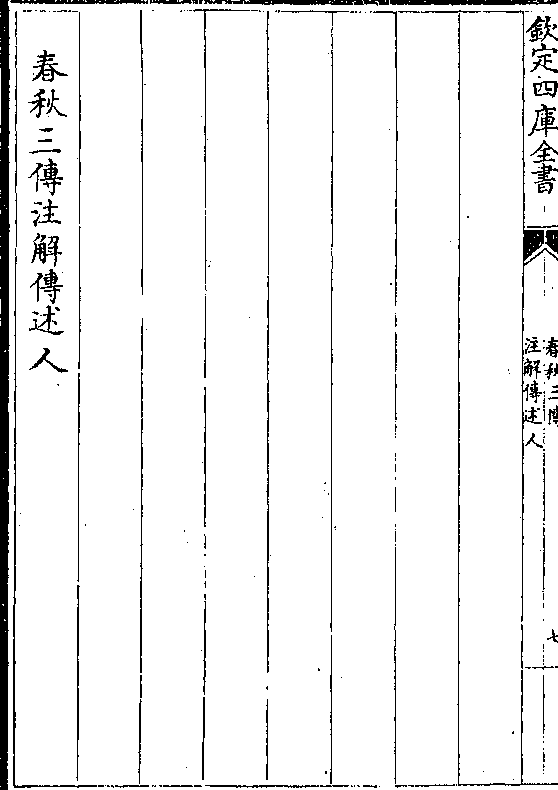 欽定四庫全書
春秋三傳
注解傳述人
七
春秋三傳注解傳述人